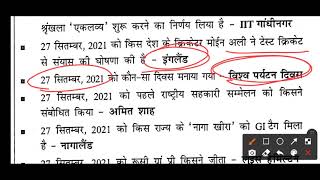 श्रृंखला 'एकलव्य' शुरू करने का निर्णय लिया है - IIT गांधीनगर
27 सितम्बर, 2021 को किस देश के क्रिकेटर मोईन अली ने टेस्ट क्रिकेट
से संयास की घोषणा की है - इंगलैंड
27 सितम्बर, 2021 को कौन-सा दिवस मनाया गया - विश्व पर्यटन दिवस
27 सितम्बर, 2021 को पहले राष्ट्रीय सहकारी सम्मेलन को किसने
संबोधित किया - अमित शाह
27 सितम्बर, 2021 को किस राज्य के 'नागा खीरा' को GI टैग मिला
है - नागालैंड
27 सितम्बर, 2021 को रूसी ग्रां प्री किसने जीता -